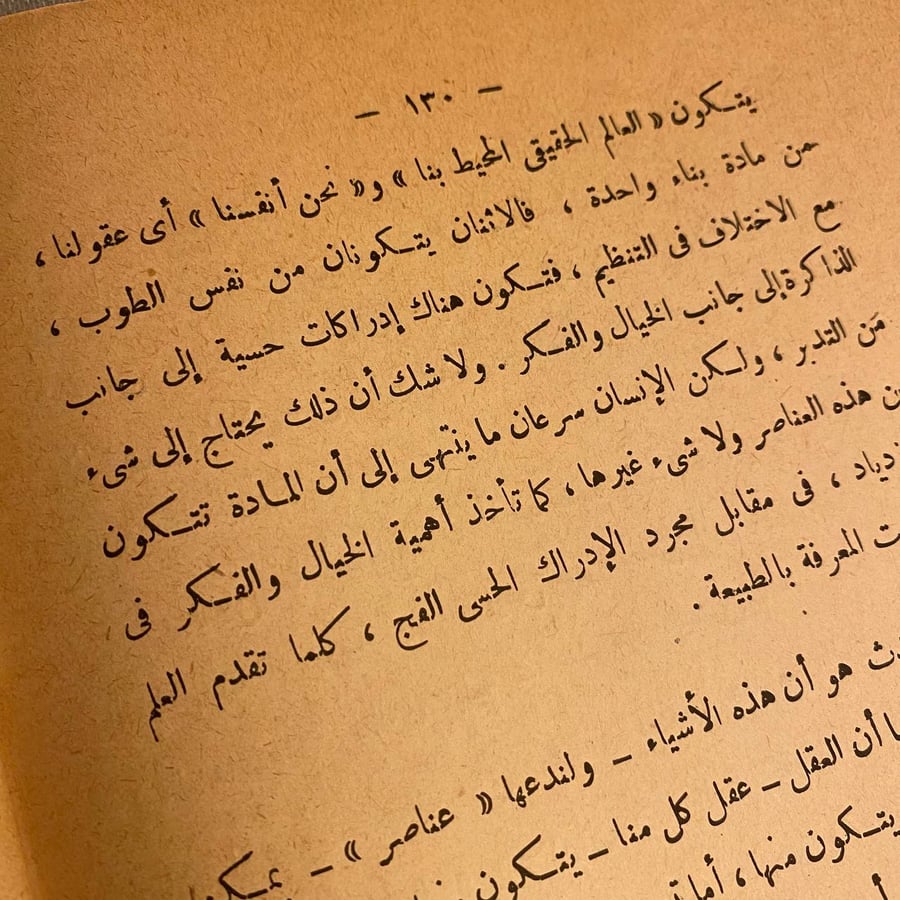 — ١٣٠ —
يتكون « العالم الحقيقى المحيط بنا » و « نحن أنفسنا » أى عقولنا ،
من مادة بناء واحدة ، فالاثنان يتكونان من نفس الطوب ،
مع الاختلاف فى التنظيم ، فتكون هناك إدراكات حسية إلى جانب
الذاكرة إلى جانب الخيال والفكر . ولا شك أن ذلك يحتاج إلى شىء
مَن التدبر ، ولكن الإنسان سرعان ما ينتهى إلى أن المادة تتكون
هذه العناصر ولا شىء غيرها ، كما تأخذ أهمية الخيال والفكر فى
، فى مقابل مجرد الإدراك الحسى الفج ، كلما تقدم العلم
المعرفة بالطبيعة .
هو أن هذه الأشياء — ولندعها « عناصر » —
أن العقل — عقل كل منا — يتكون
يتكون منها ، أما